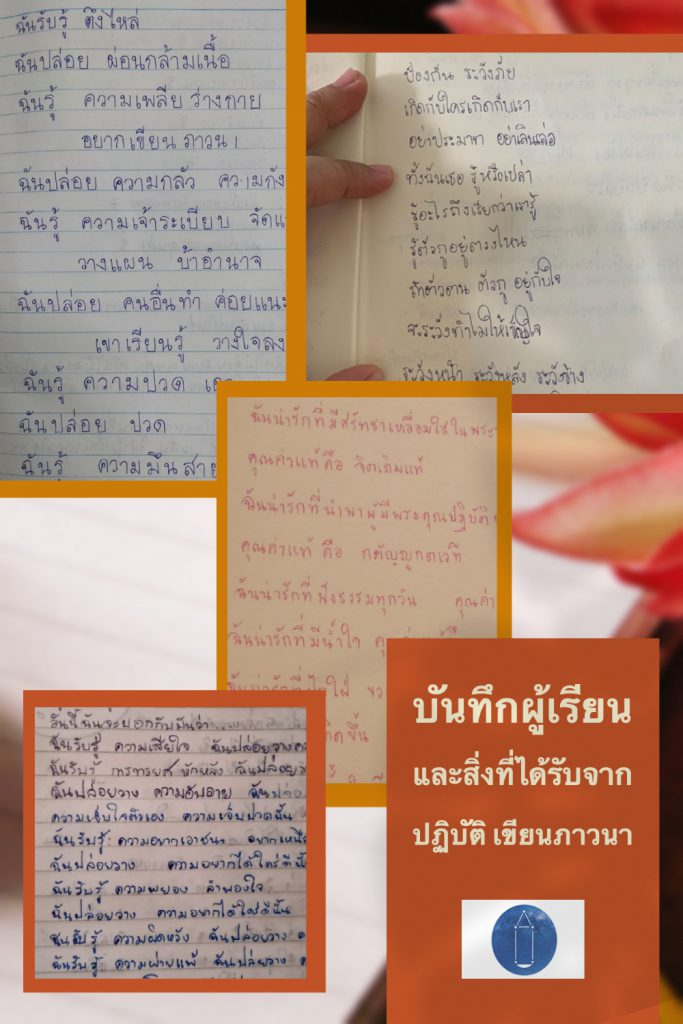 ฉันรับรู้ ตึงไหล่
ฉันปล่อย ผ่อนกล้ามเนื้อ
ฉันรู้ ความเพลีย ร่างกาย
อยากเขียน ภาวนา
ฉันปล่อย ความกลัว ความกัง
ฉันรู้ ความเจ้าระเบียบ จัดแ
วางแผน บ้าอำนาจ
ฉันปล่อย คนอื่นทำ ค่อยแนะ
เขาเรียนรู้ วางใจลง
ฉันรู้ ความปวด
ฉันปล่อย ปวด
ฉันรู้ ความมึน สาย
ป้องกัน ระวังภัย
เกิดกับใครเกิดกับเรา
อย่าประมาท อย่าเลินเล่อ
ทั้งฉันเธอ รู้หรือเปล่า
รู้อะไรถึงเรียกว่าเรารู้
รู้ตัวกูอยู่ตรงไหน
ถ้าตัวตน ตัวกู อยู่กับใจ
จะระวังทำไมให้
ระวังหน้า ระวังหลัง ระวังข้าง
ฉันน่ารักที่มีศรัทธาเหลื่อมใสในพระ
คุณค่าแท้คือ จิตเดิมแท้
ฉันน่ารักที่นำพาผู้มีพระคุณปฏิบัติ
คุณค่าแท้ คือ กตัญญูกตเวที
ฉันน่ารักที่ฟังธรรมทุกวัน คุณค่า
ฉันน่ารักที่มีน้ำใจ
ฉันน่ารักที่ใฝ่
เกิดขึ้น
วันนี้ฉันจะบอกกับฉันว่า ...
ฉันรับรู้ ความเสียใจ ฉันปล่อยวาง
ฉันรับรู้ การทรยศ หักหลัง ฉันปล่อย
ฉันปล่อยวาง ความอับอาย ฉัน
ความเจ็บใจตัวเอง ความเจ็บปวดนั้น
ฉันรับรู้ ความอยากเอาชนะ อยากเหนือ
ฉันปล่อยวาง ความอยากได้ใคร่ดีนั้น
ฉันรับรู้ ความผยอง ลำพองใจ
ฉันปล่อยวาง ความอยากได้ใคร่ดีนั้น
ฉันรับรู้ ความผิดหวัง ฉันปล่อยวาง
ฉันรับรู้ ความพ่ายแพ้ ฉันปล่อยวาง
บันทึกผู้เรียน
และสิ่งที่ได้รับจาก
ปฏิบัติ เขียนภาวนา